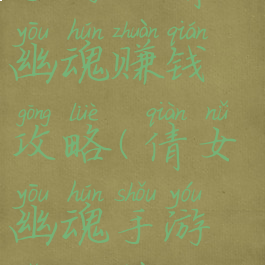 yōu hún zhuàn qián
幽魂赚钱
gōng lüè qiàn nǚ
攻略(倩女
yōu hún shǒu yóu
幽魂手游